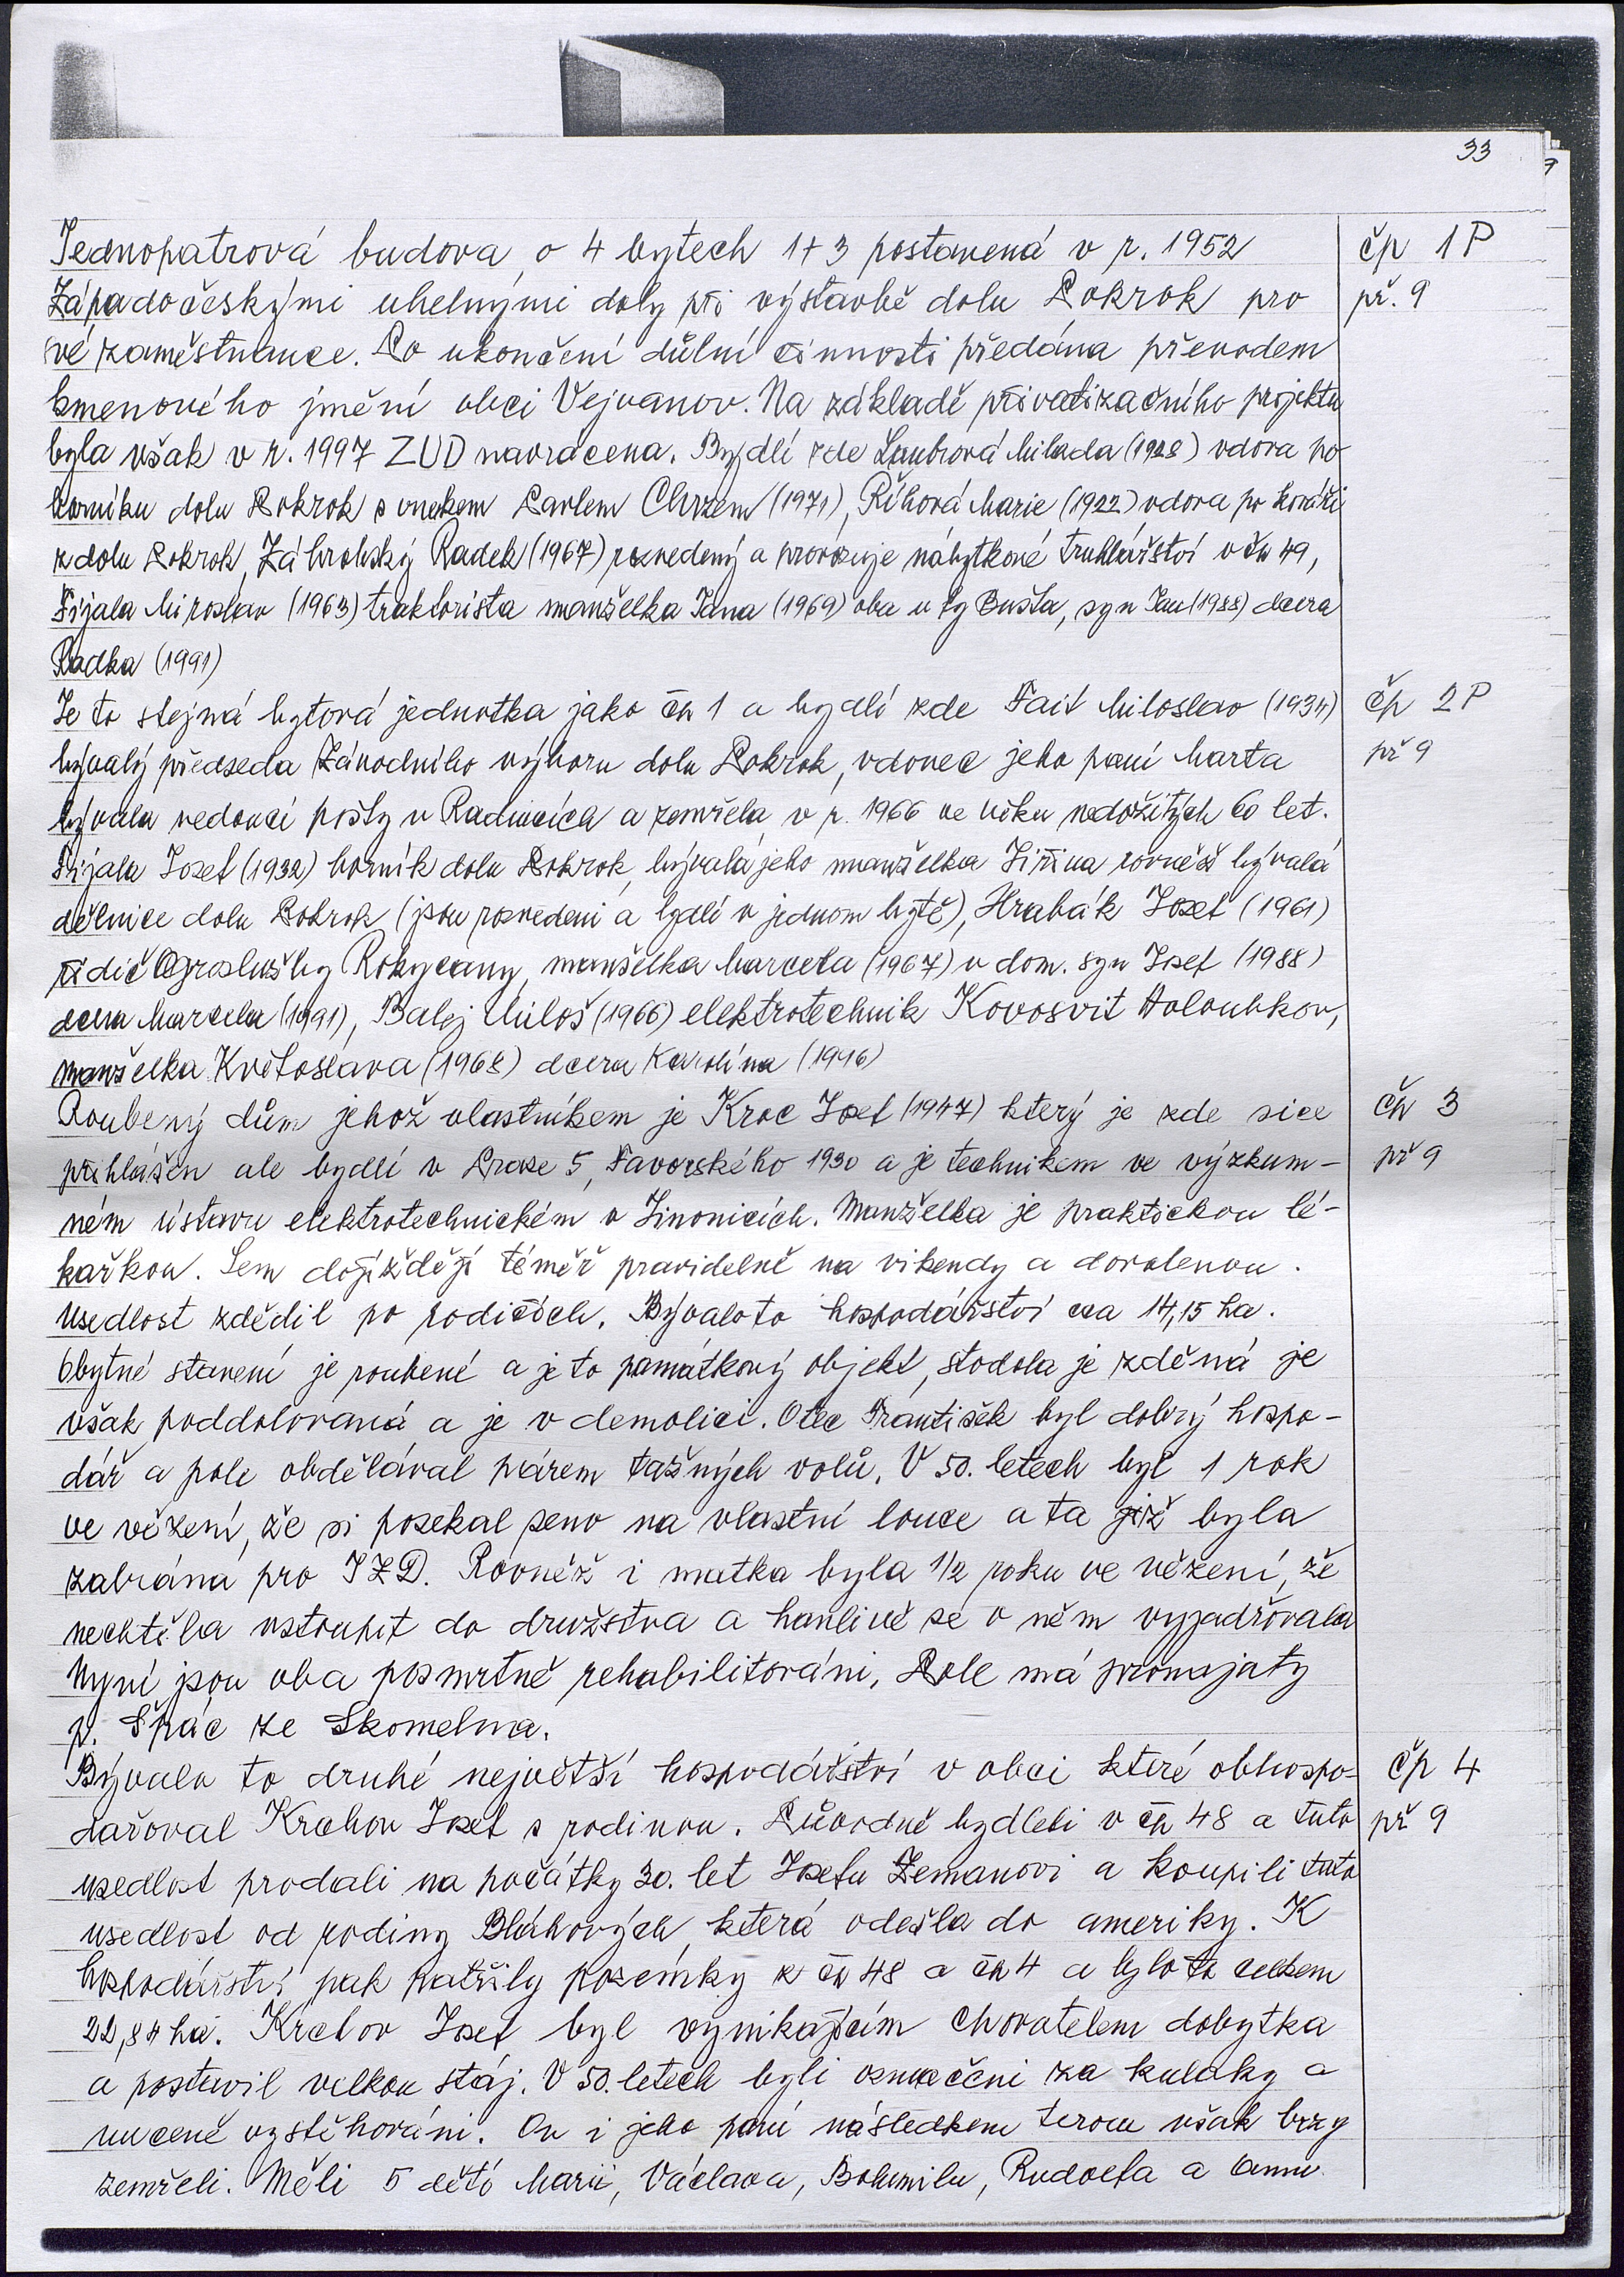 33
Jednopatrová budova o 4 bytech 1+3 postavená v r. 1952
čp 1P
Západočeskými uhelnými doly při výstavbě dolu Pokrok pro
př. 9
své zaměstnance. Po ukončení důlní činnosti předána převodem
kmenového jmění obci Vejvanov. Na základě privatizačního projektu
byla však v r. 1997 ZUD navrácena. Bydlí zde Milada (1928) vdova po
horníku dolu Pokrok s vnukem Pavlem Chrzem (1971), Říhová Marie (1922) vdova po kováři
z dolu Pokrok, Záhrobský Radek (1967) rozvedený a provozuje nábytkové truhlářství v čp 49,
Fijala Miroslav (1963) traktorista manželka Jana (1969) oba u fy Bušta, syn Jan (1988) dcera
Radka (1991)
Je to stejná bytová jednotka jako čp 1 a bydlí zde Fait Miloslav (1934)
čp 2P
bývalý předseda Závodního výboru dolu Pokrok, vdovec jeho paní Marta
př 9
bývala vedoucí pošty v Radnicích a zemřela v r. 1966 ve věku nedožitých 60 let.
Fijala Josef (1932) horník dolu Pokrok, bývalá jeho manželka Jiřina rovněž bývalá
dělnice dolu Pokrok (jsou rozvedeni a bydlí v jednom bytě), Hrabák Josef (1961)
řidič Agroslužby Rokycany, manželka Marcela (1967) v dom. syn Josef (1988)
dcera Marcela (1991), Balej Miloš (1966) elektrotechnik Kovosvit Holoubkov,
manželka Květoslava (1968) dcera Karolína (1996)
Roubený dům jehož vlastníkem je Kroc Josef (1947) který je zde sice
čp 3
přihlášen ale bydlí v Praze 5, Favorského 1930 a je technikem ve výzkum-
př 9
ném ústavu elektrotechnickém v Jinonicích. Manželka je praktickou lé-
kařkou. Sem dojíždějí téměř pravidelně na vikendy a dovolenou.
Usedlost zdědil po rodičích. Bývalo to hospodářství cca 14,15 ha.
Obytné stavení je roubené a je to památkový objekt, stodola je zděná je
však poddolovaná a je v demolici. Otec František byl dobrý hospo-
dář a pole obdělával párem tažných volů. V 50. letech byl 1 rok
ve vězení, že si posekal seno na vlastní louce a ta již byla
zabrána pro JZD. Rovněž i matka byla 1/2 roku ve vězení, že
nechtěla vstoupit do družstva a hanlivě se o něm vyjadřovala
Nyní jsou oba posmrtně rehabilitováni, Pole má pronajaty
p. Špác ze Skomelna.
Bývalo to druhé největší hospodářství v obci které obhospo-
čp 4
dařoval Krohov Josef s rodinou. Původně bydleli v čp 48 a tuto
př 9
usedlost prodali na počátky 30. let Josefu Zemanovi a koupili tuto
usedlost od rodiny Bláhových, která odešla do ameriky. K
hospodářství pak patřily pozemky z čp 48 a čp 4 a bylo to celkem
22,84 ha. Krohov Josef byl vynikajícím chovatelem dobytka
a postavil velkou stáj. V 50. letech byli označeni za kulaky a
nuceně vystěhováni. On i jeho paní následkem teroru však brzy
zemřeli. Měli 5 dětí Marii, Václava, Bohumilu, Rudolfa a Annu.